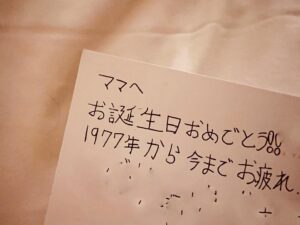 ママへ
お誕生日おめでとう!!
1977年から今までお疲れ